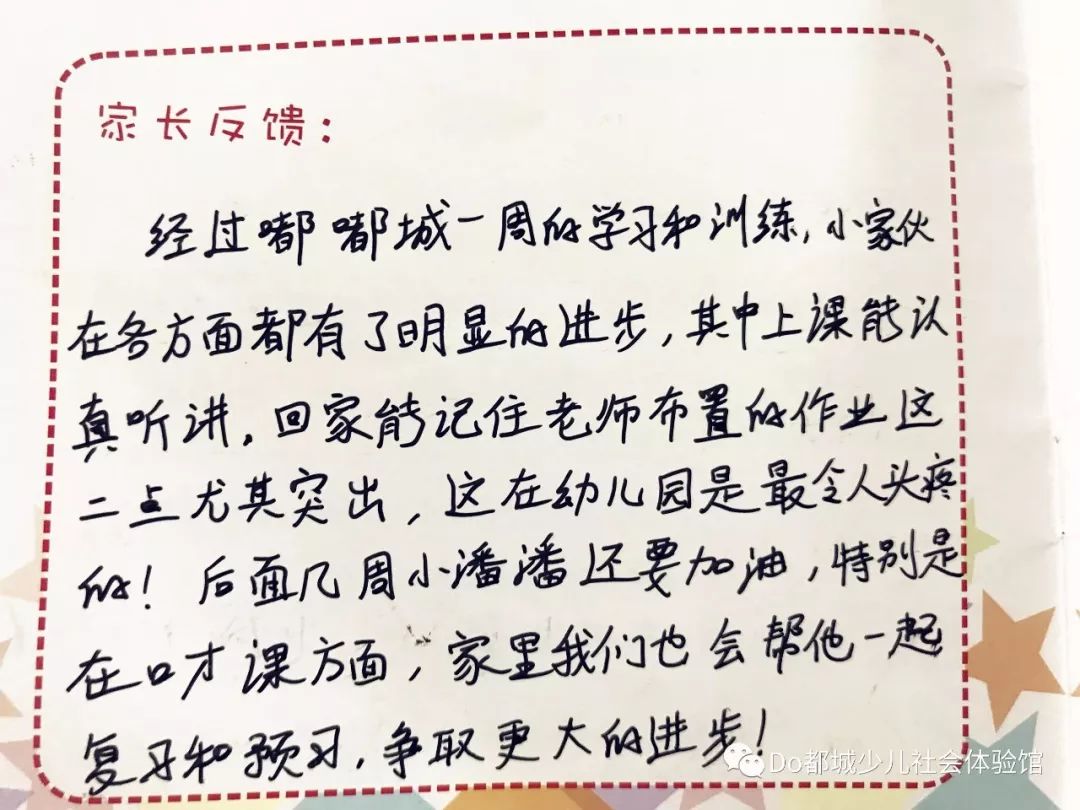 家长反馈：
经过嘟嘟城一周的学习和训练，小家伙
在各方面都有了明显的进步，其中上课能认
真听讲，回家能记住老师布置的作业这
二点尤其突出，这在幼儿园是最令人头疼
的！后面几周小潘潘还要加油，特别是
在口才课方面，家里我们也会帮他一起
复习和预习，争取更大的进步！
Do都城少儿社会体验馆